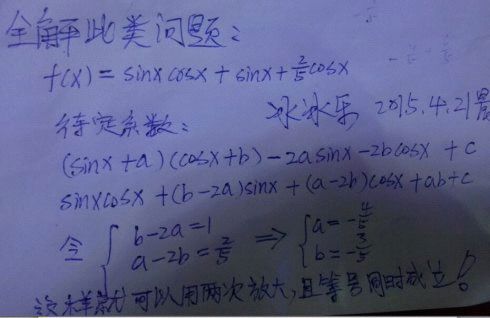 全解此类问题:
f(x) = sinx cosx + sinx + 2/5 cosx
冰冰乐 2015.4.21晨
待定系数:
(sinx+a)(cosx+b) - 2a sinx - 2b cosx + c
sinxcosx + (b-2a)sinx + (a-2b)cosx + ab+c
令 { b-2a=1 a-2b=2/5 ⇒ { a=-4/5 b=-3/5
这样就可以用两次放大,且等号同时成立!